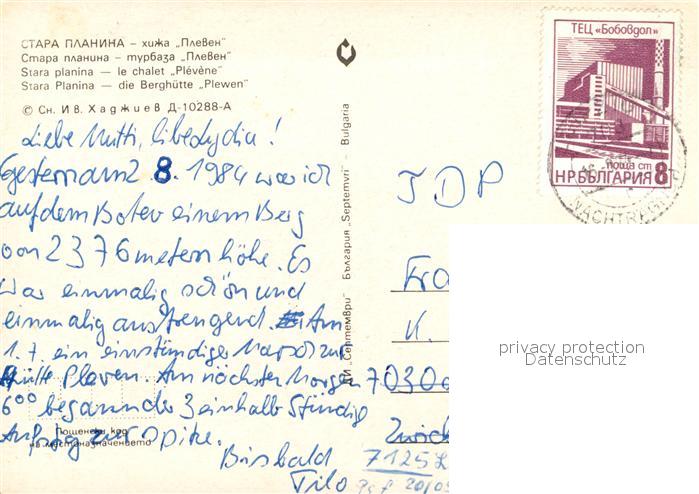 СТАРА ПЛАНИНА – хижа „Плевен"
Стара планина – турбаза „Плевен"
Stara planina — le chalet „Plévène"
Stara Planina — die Berghütte „Plewen"
© Сн. Ив. Хаджиев Д-10288-А
Liebe Mutti, liebe Lydia!
Gestern am 2. 8. 1984 war ich
auf dem Botev einem Berg
von 2376 metern höhe. Es
war einmalig schön und
einmalig anstrengend. Am
1. 7. ein einstündiger Marsch zur
Hütte Pleven. Am nächsten Morgen
6⁰⁰ begann der 3 einhalb Stündig
Aufstieg zur Spitze.
Bis bald
Tilo
Пощенски код
на местоназначението
ДИ „Септември" България „Septemvri" Bulgaria
ТЕЦ „Бобовдол"
поща ст
НР БЪЛГАРИЯ 8
NACHTRE
TDP
Fra
K.
7030
Zwick
7125 L
privacy protection
Datenschutz